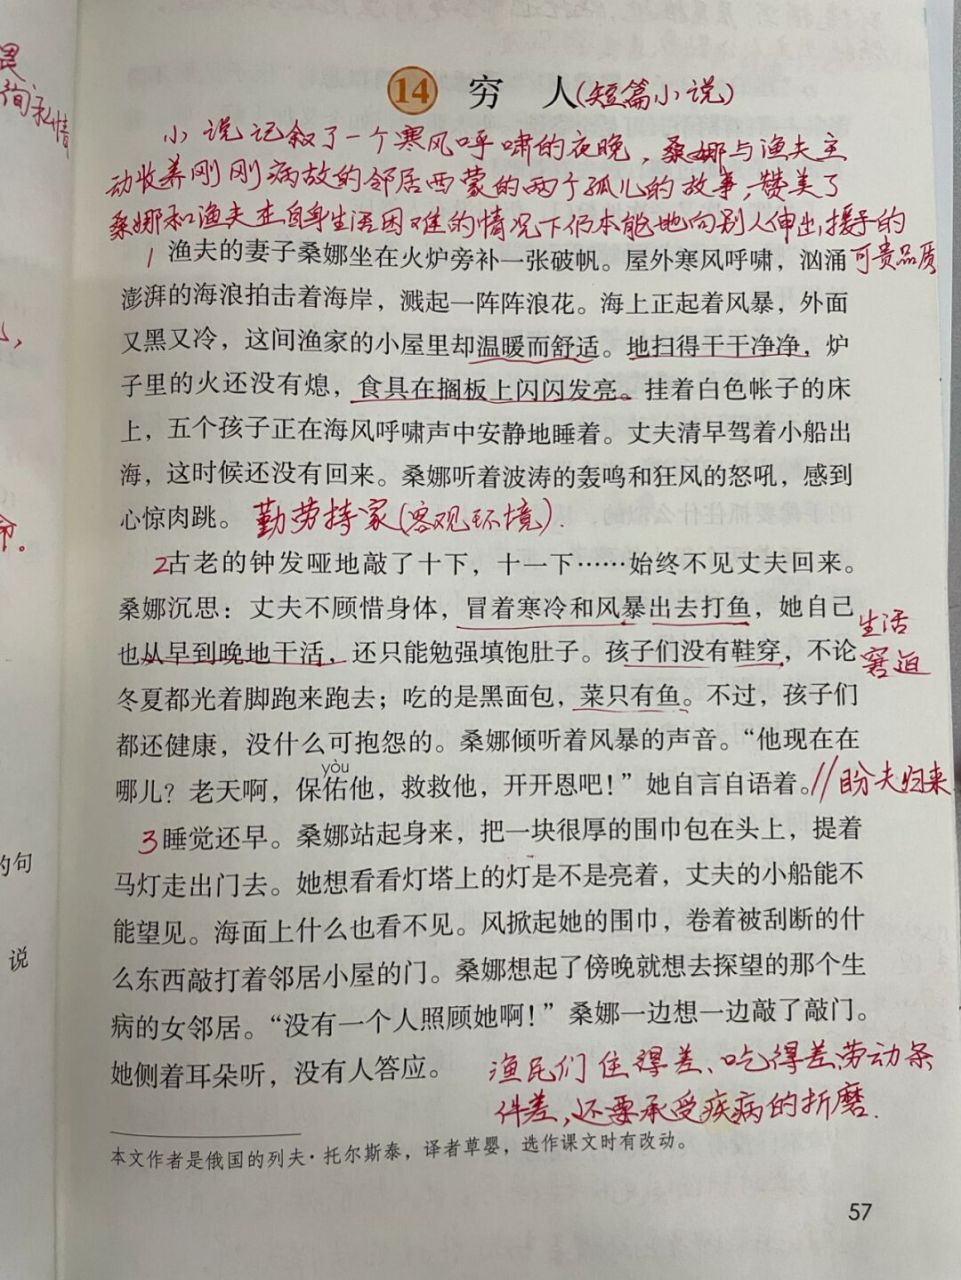 畏
徇私情
心，
命。
的句
说
14 穷 人(短篇小说)
小说记叙了一个寒风呼啸的夜晚，桑娜与渔夫主
动收养刚刚病故的邻居西蒙的两个孤儿的故事，赞美了
桑娜和渔夫在自身生活困难的情况下仍本能地向别人伸出援手的
可贵品质
1 渔夫的妻子桑娜坐在火炉旁补一张破帆。屋外寒风呼啸，汹涌
澎湃的海浪拍击着海岸，溅起一阵阵浪花。海上正起着风暴，外面
又黑又冷，这间渔家的小屋里却温暖而舒适。地扫得干干净净，炉
子里的火还没有熄，食具在搁板上闪闪发亮。挂着白色帐子的床
上，五个孩子正在海风呼啸声中安静地睡着。丈夫清早驾着小船出
海，这时候还没有回来。桑娜听着波涛的轰鸣和狂风的怒吼，感到
心惊肉跳。 勤劳持家(客观环境).
2古老的钟发哑地敲了十下，十一下……始终不见丈夫回来。
桑娜沉思：丈夫不顾惜身体，冒着寒冷和风暴出去打鱼，她自己
也从早到晚地干活，还只能勉强填饱肚子。孩子们没有鞋穿，不论
生活
窘迫
冬夏都光着脚跑来跑去；吃的是黑面包，菜只有鱼。不过，孩子们
都还健康，没什么可抱怨的。桑娜倾听着风暴的声音。“他现在在
yòu
哪儿？老天啊，保佑他，救救他，开开恩吧！”她自言自语着。//盼夫归来
3睡觉还早。桑娜站起身来，把一块很厚的围巾包在头上，提着
马灯走出门去。她想看看灯塔上的灯是不是亮着，丈夫的小船能不
能望见。海面上什么也看不见。风掀起她的围巾，卷着被刮断的什
么东西敲打着邻居小屋的门。桑娜想起了傍晚就想去探望的那个生
病的女邻居。“没有一个人照顾她啊！”桑娜一边想一边敲了敲门。
她侧着耳朵听，没有人答应。 渔民们住得差、吃得差、劳动条
件差，还要承受疾病的折磨.
本文作者是俄国的列夫·托尔斯泰，译者草婴，选作课文时有改动。
57